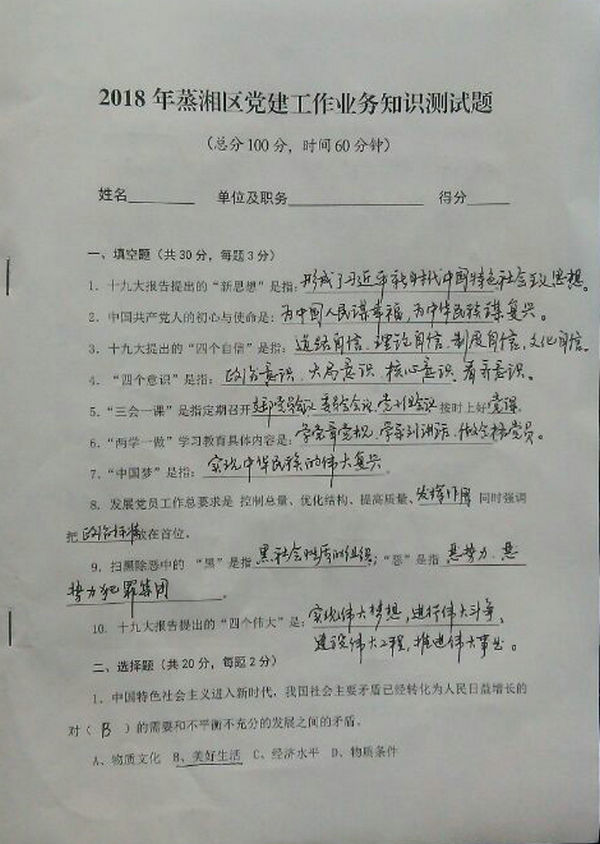 2018 年蒸湘区党建工作业务知识测试题
（总分 100 分，时间 60 分钟）
姓名________ 单位及职务________________ 得分_____
一、填空题（共 30 分，每题 3 分）
1. 十九大报告提出的“新思想”是指：形成了习近平新时代中国特色社会主义思想。
2. 中国共产党人的初心与使命是：为中国人民谋幸福，为中华民族谋复兴。
3. 十九大提出的“四个自信”是指：道路自信、理论自信、制度自信、文化自信。
4. “四个意识”是指：政治意识、大局意识、核心意识、看齐意识。
5. “三会一课”是指定期召开支部党员会议、委员会会议、党小组会议按时上好党课。
6. “两学一做”学习教育具体内容是：学党章党规、学系列讲话、做合格党员。
7. “中国梦”是指：实现中华民族的伟大复兴。
8. 发展党员工作总要求是 控制总量、优化结构、提高质量、发挥作用 同时强调
把 政治标准 放在首位。
9. 扫黑除恶中的 “黑”是指 黑社会性质的组织；“恶”是指 恶势力、恶
势力犯罪集团。
10. 十九大报告提出的“四个伟大”是：实现伟大梦想，进行伟大斗争，
建设伟大工程，推进伟大事业。
二、选择题（共 20 分，每题 2 分）
1. 中国特色社会主义进入新时代，我国社会主要矛盾已经转化为人民日益增长的
对（ B ）的需要和不平衡不充分的发展之间的矛盾。
A、物质文化 B、美好生活 C、经济水平 D、物质条件